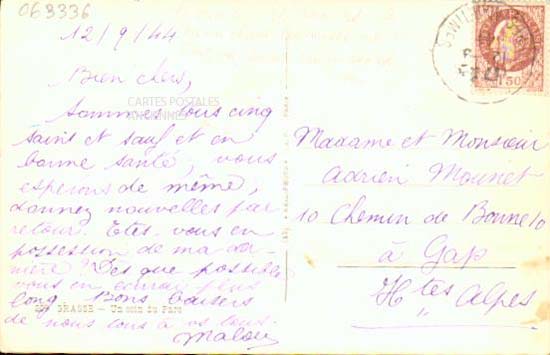 063336
12/9/44
Bien chers,
Sommes tous cinq
saint et sauf et en
bonne santé, vous
esperons de même,
donnez nouvelles par
retour. Etes-vous en
possession de ma der-
nière? Dès que possible
vous en écrirai plus
long. Bons baisers
de nous tous à vos tous.
Malou
GRASSE - Un coin du Parc
CARTES POSTALES
ANCIENNES
Madame et Monsieur
Adrien Mounet
10 Chemin de Bonne 10
à Gap
Htes Alpes
1F50